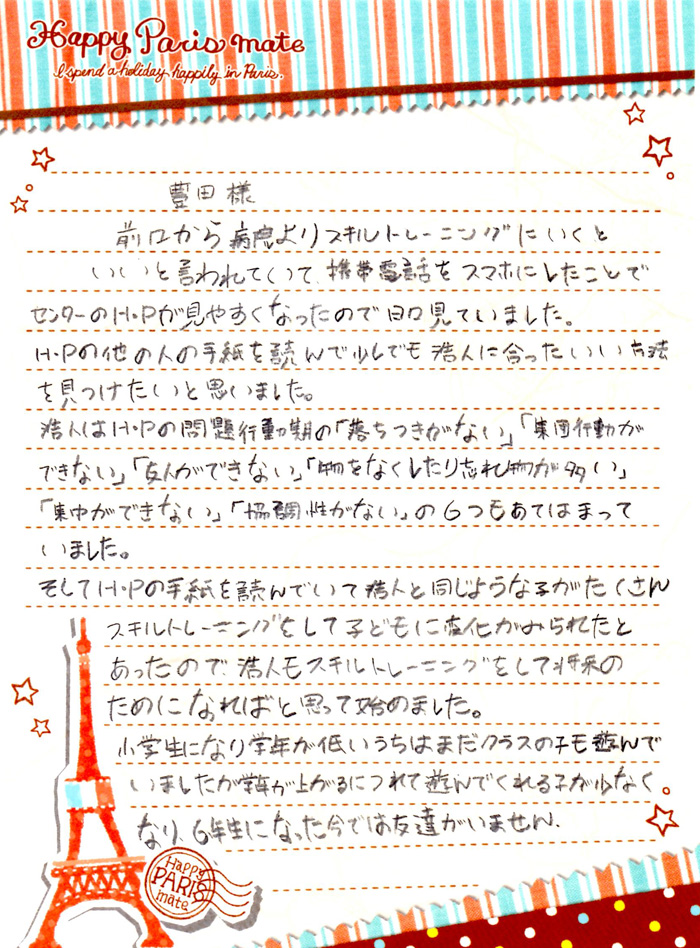 Happy Paris mate
I spend a holiday happily in Paris.
豊田様
前々から病院よりスキルトレーニングにいくと
いいと言われていて、携帯電話をスマホにしたことで
センターのH・Pが見やすくなったので日々見ていました。
H・Pの他の人の手紙を読んで少しでも浩人に合ったいい方法
を見つけたいと思いました。
浩人はH・Pの問題行動期の「落ちつきがない」「集団行動が
できない」「友人ができない」「物をなくしたり忘れ物が多い」
「集中ができない」「協調性がない」の6つもあてはまって
いました。
そしてH・Pの手紙を読んでいて浩人と同じような子がたくさん
スキルトレーニングをして子どもに変化がみられたと
あったので、浩人もスキルトレーニングをして将来の
ためになればと思って始めました。
小学生になり学年が低いうちはまだクラスの子も遊んで
いましたが学年が上がるにつれて遊んでくれる子が少なく
なり、6年生になった今では友達がいません.
Happy
PARIS
mate